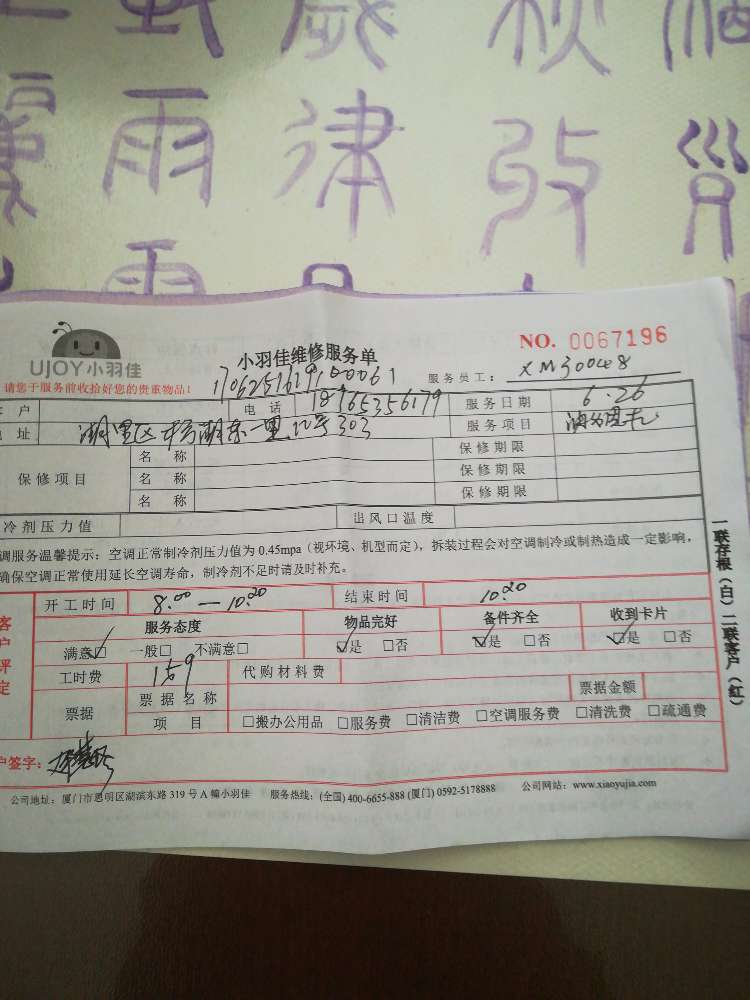 雨 律
NO. 0067196
UJOY小羽佳
小羽佳维修服务单
请您于服务前收拾好您的贵重物品!
服务员工: XM300408
户 电 话 18965356179 服务日期 6.26
址 湖里区 303 服务项目
保修项目 名 称 保修期限
名 称 保修期限
名 称 保修期限
冷剂压力值 出风口温度
调服务温馨提示: 空调正常制冷剂压力值为 0.45mpa (视环境、机型而定), 拆装过程会对空调制冷或制热造成一定影响,
确保空调正常使用延长空调寿命, 制冷剂不足时请及时补充。
开工时间 8:00 — 10:20 结束时间 10:20
服务态度 物品完好 备件齐全 收到卡片
满意☑ 一般□ 不满意□ ☑是 □否 ☑是 □否 ☑是 □否
工时费 159 代购材料费
票据 票据名称 票据金额
项 目 □搬办公用品 □服务费 □清洁费 □空调服务费 □清洗费 □疏通费
客户评定
户签字:
公司地址: 厦门市思明区湖滨东路 319 号 A 幢小羽佳 服务热线: (全国) 400-6655-888 (厦门) 0592-5178888 公司网站: www.xiaoyujia.com
一联存根(白)二联客户(红)